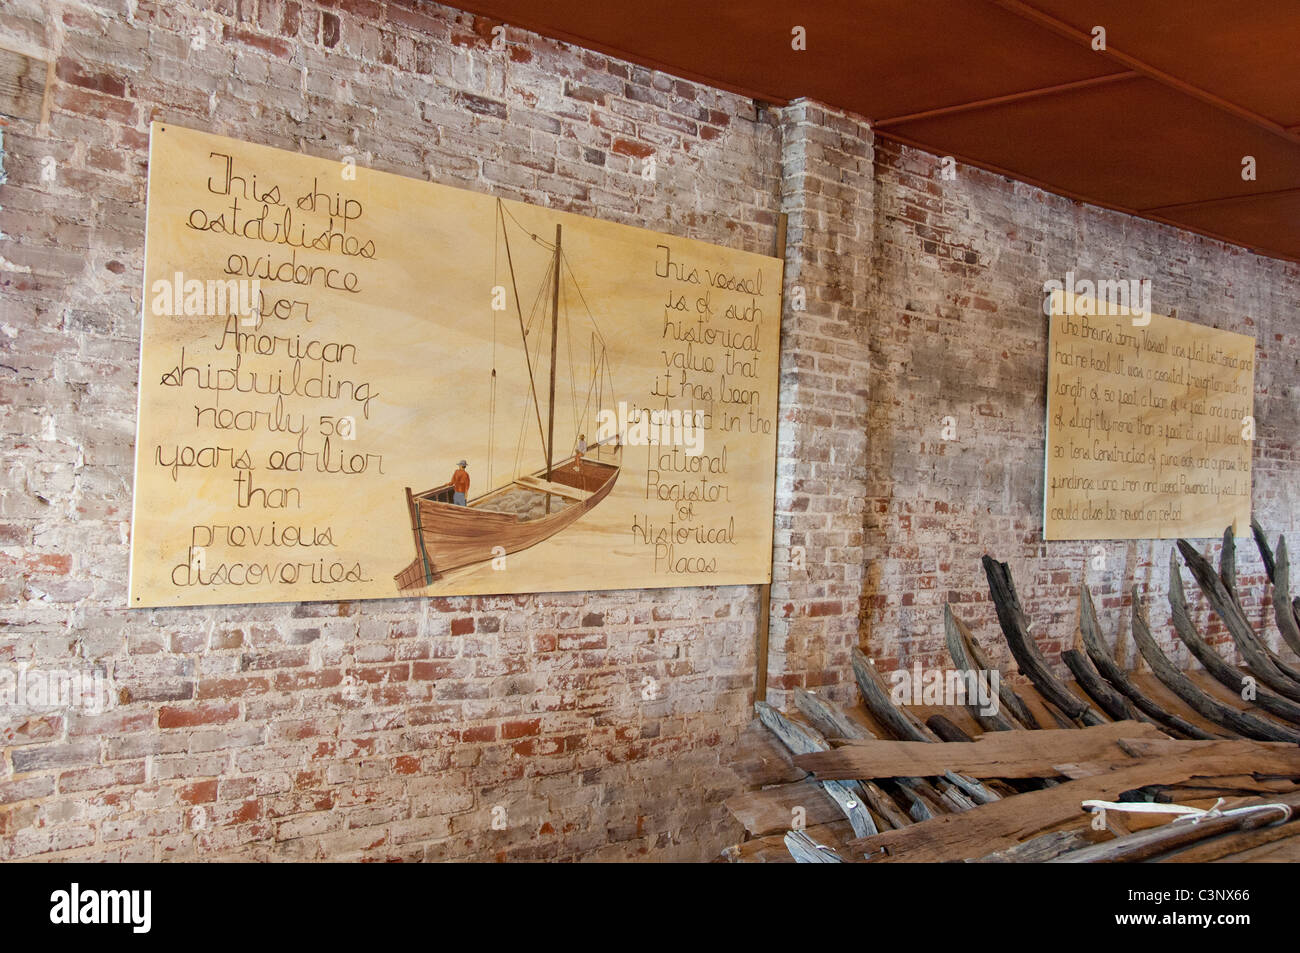 This ship
establishes
evidence
for
American
shipbuilding
nearly 50
years earlier
than
previous
discoveries.
This vessel
is of such
historical
value that
it has been
included in the
National
Register
of
Historical
Places
The Brown's Ferry Vessel was flat bottomed and
had no keel. It was a coastal freighter with a
length of 50 feet, a beam of 14 feet and a draft
of slightly more than 3 feet at a full load
30 tons. Constructed of pine, oak and cypress the
findings were iron and wood. Powered by sail it
could also be rowed or poled.
alamy
Image ID: C3NX66
www.alamy.com